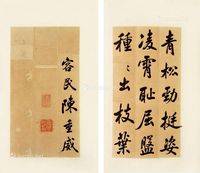 青松勁挺姿
凌霄恥屈盤
種〻出枝葉
容民陳重威